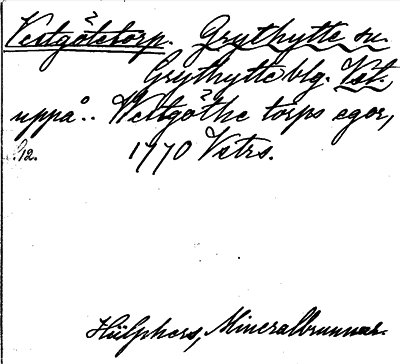 Vestgötetorp. Grythytte sn.
Grythytte blg. Vstm.
uppå.. Westgöthe torps egor,
s. 12. 1770 Vstrs.
Hülphers, Mineralbrunnar.